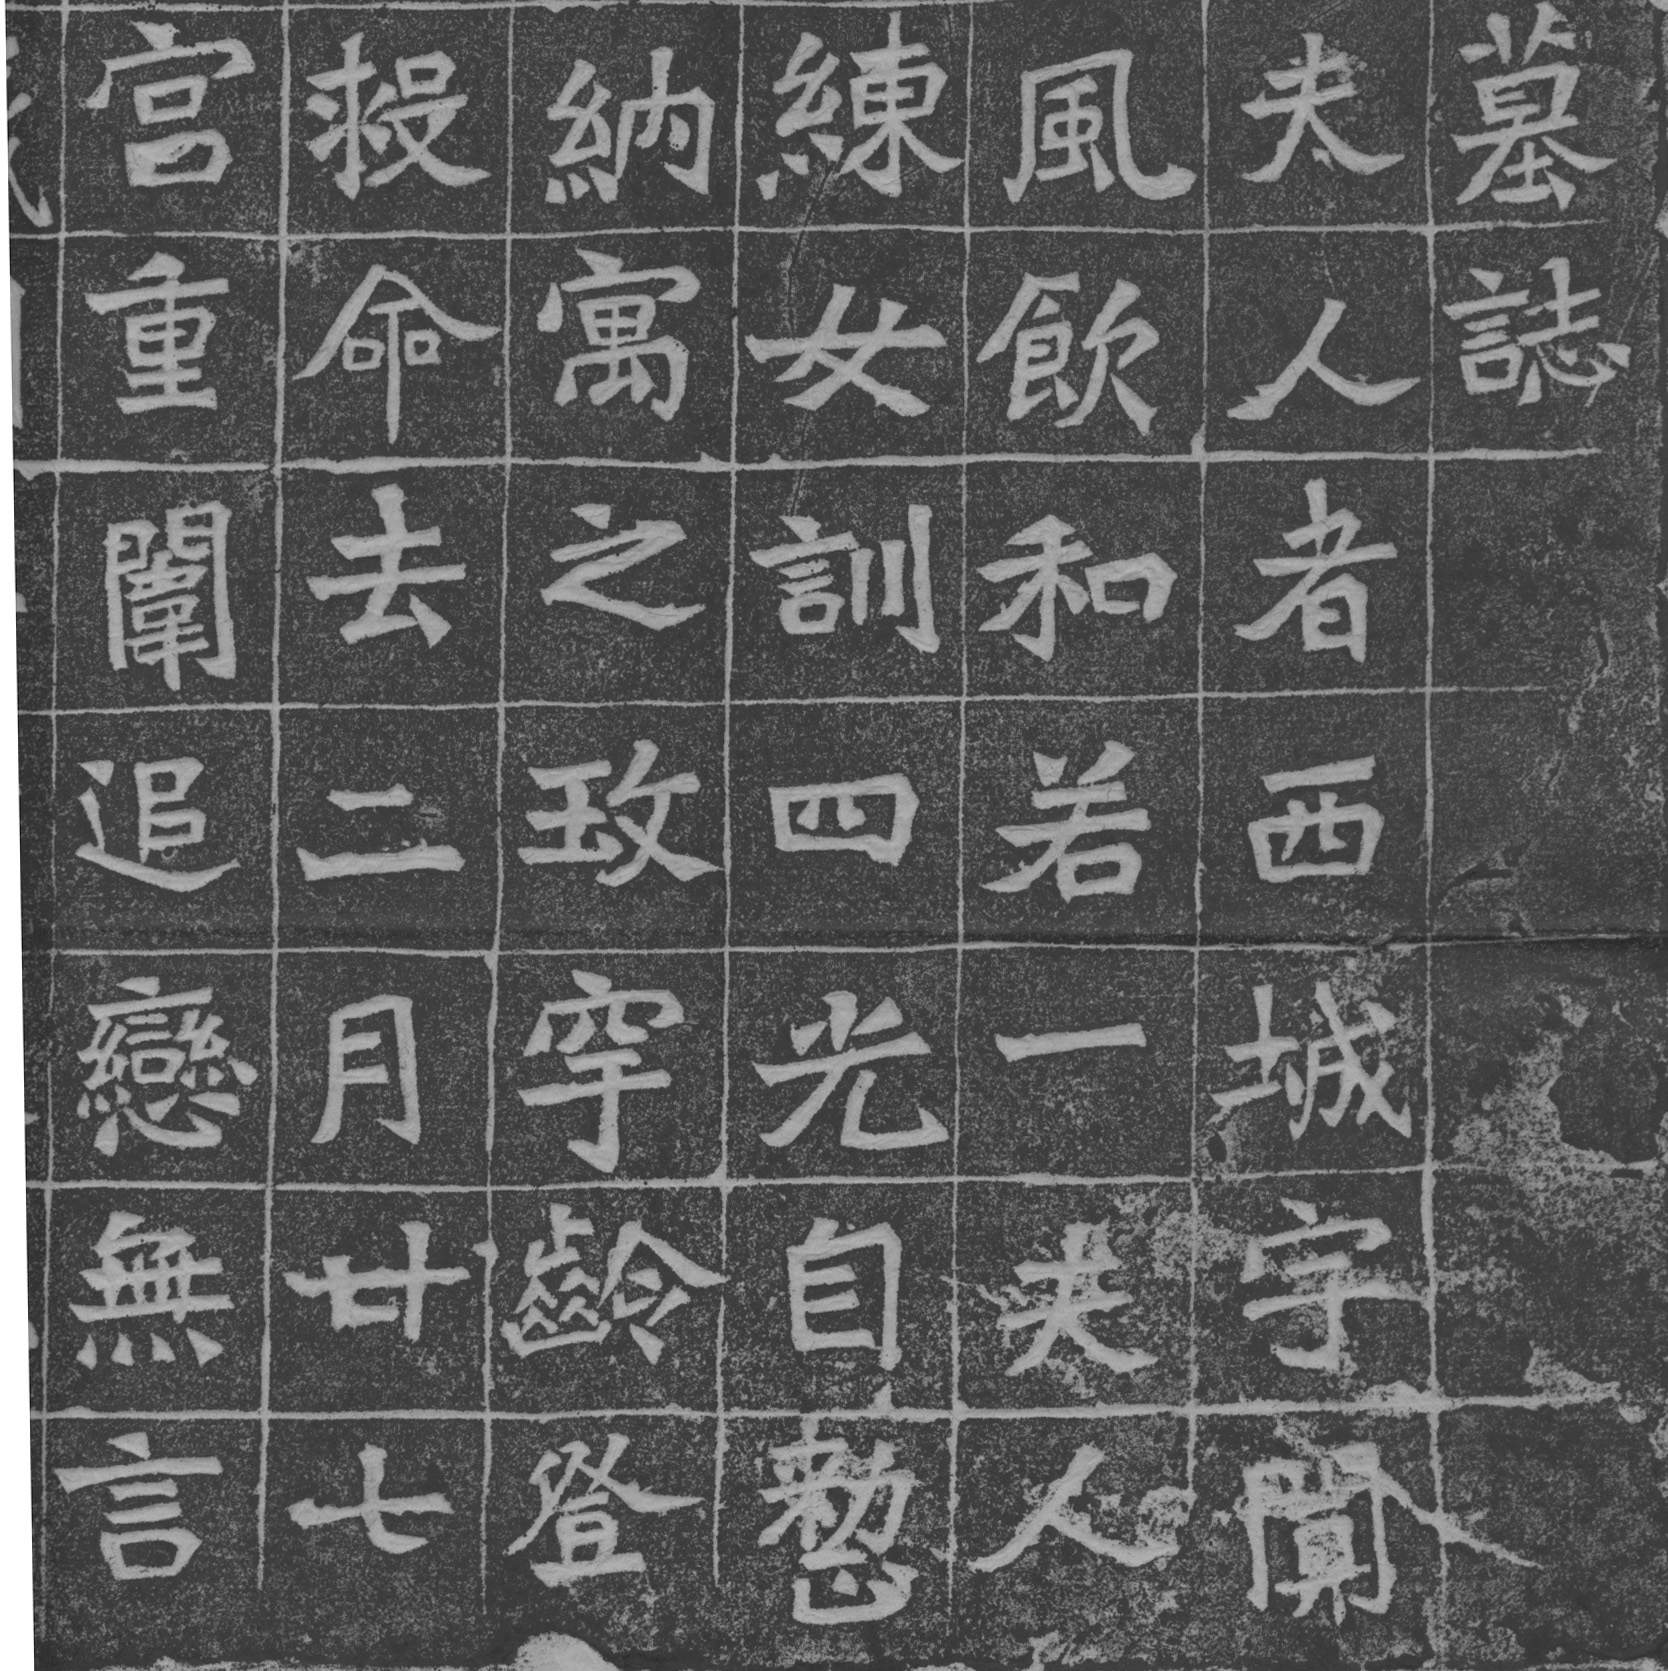 墓誌
夫人者西城宇闐
風飲和若一夫人
練女訓四光自懃
納寓之致穹齡登
救命去二月廿七
宮重闈追戀無言